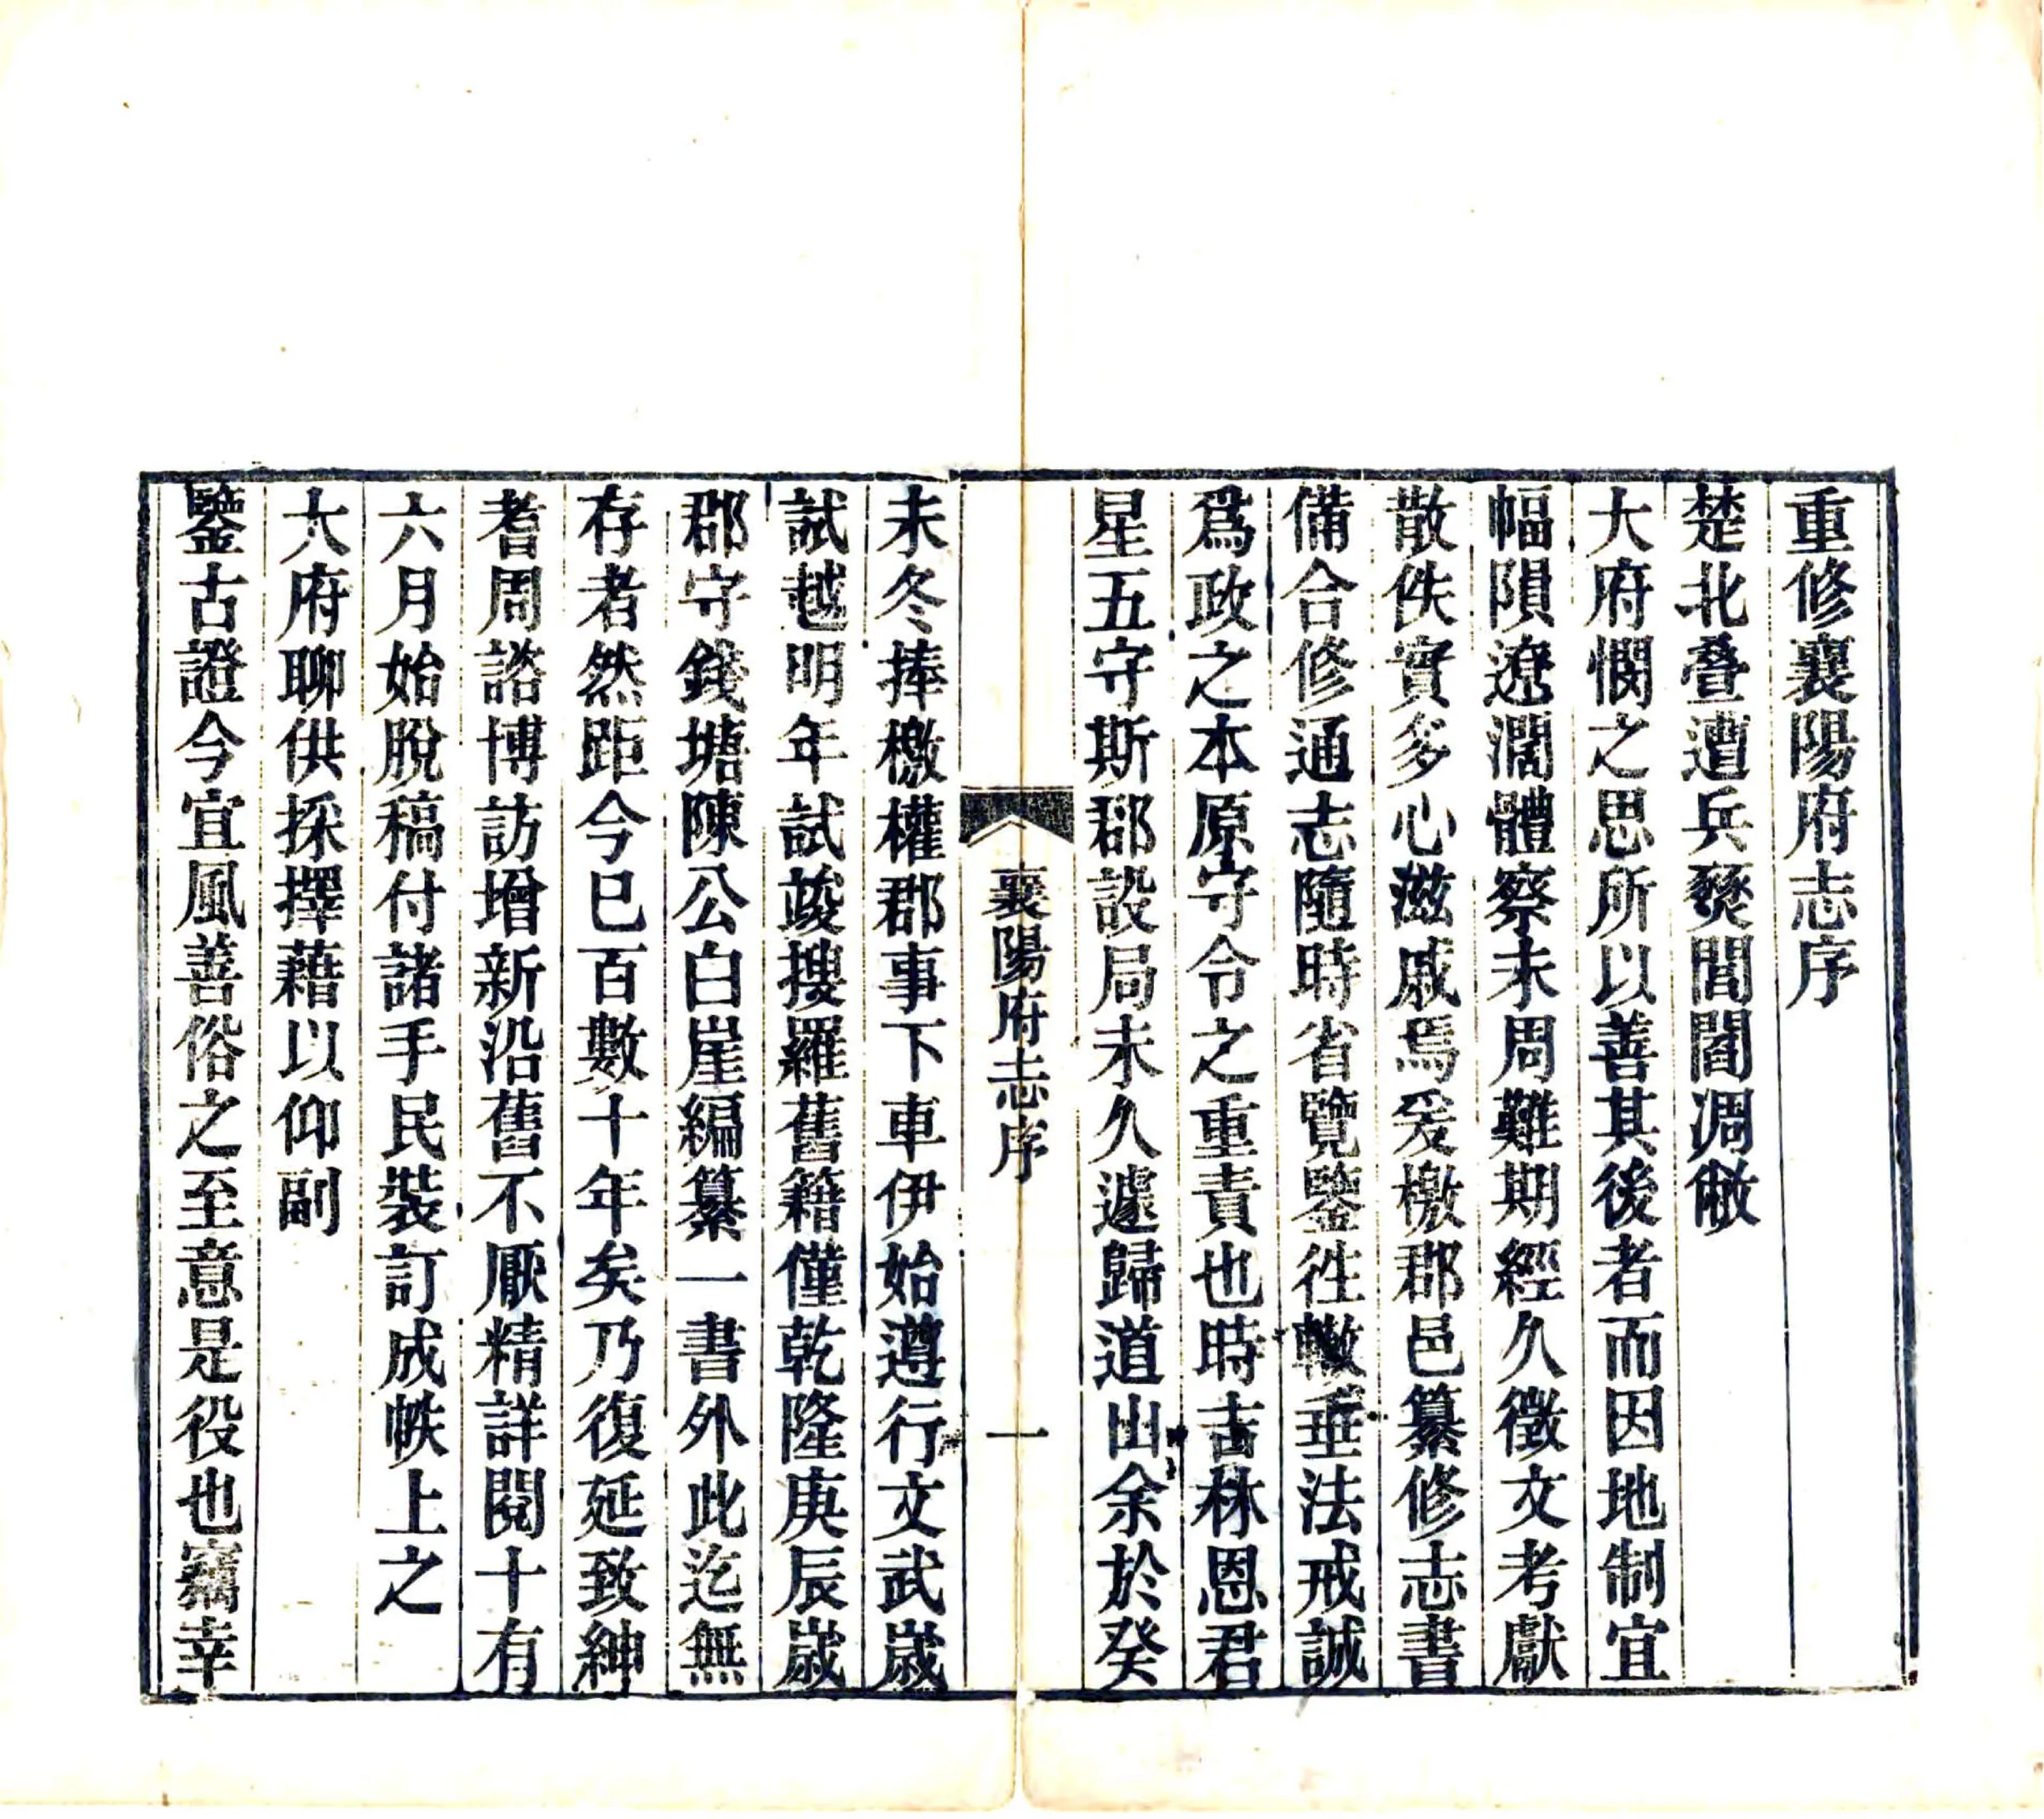 重修襄陽府志序
楚北疊遭兵燹閭閻凋敝
大府憫之思所以善其後者而因地制宜
幅隕遼濶體察未周難期經久徵文考獻
散佚實多心滋戚焉爰檄郡邑纂修志書
備合修通志隨時省覽鑒徃轍垂法戒誠
爲政之本原守令之重責也時吉林恩君
星五守斯郡設局未久遽歸道山余於癸
襄陽府志序
一
未冬捧檄權郡事下車伊始遵行文武歲
試越明年試竣搜羅舊籍僅乾隆庚辰歲
郡守錢塘陳公白崖編纂一書外此迄無
存者然距今已百數十年矣乃復延致紳
耆周諮博訪增新沿舊不厭精詳閱十有
六月始脫稿付諸手民裝訂成帙上之
大府聊供採擇藉以仰副
鑒古證今宜風善俗之至意是役也竊幸